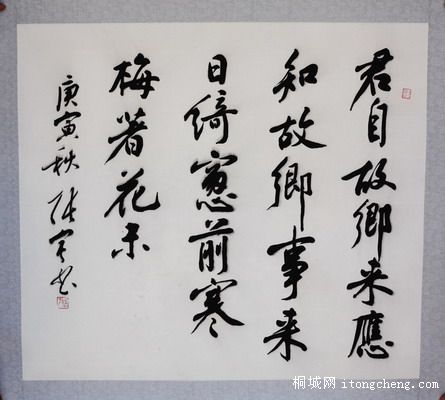 君自故鄉来應
知故鄉事来
日綺窻前寒
梅著花未
庚寅秋張宏书
桐城网 itongcheng.com